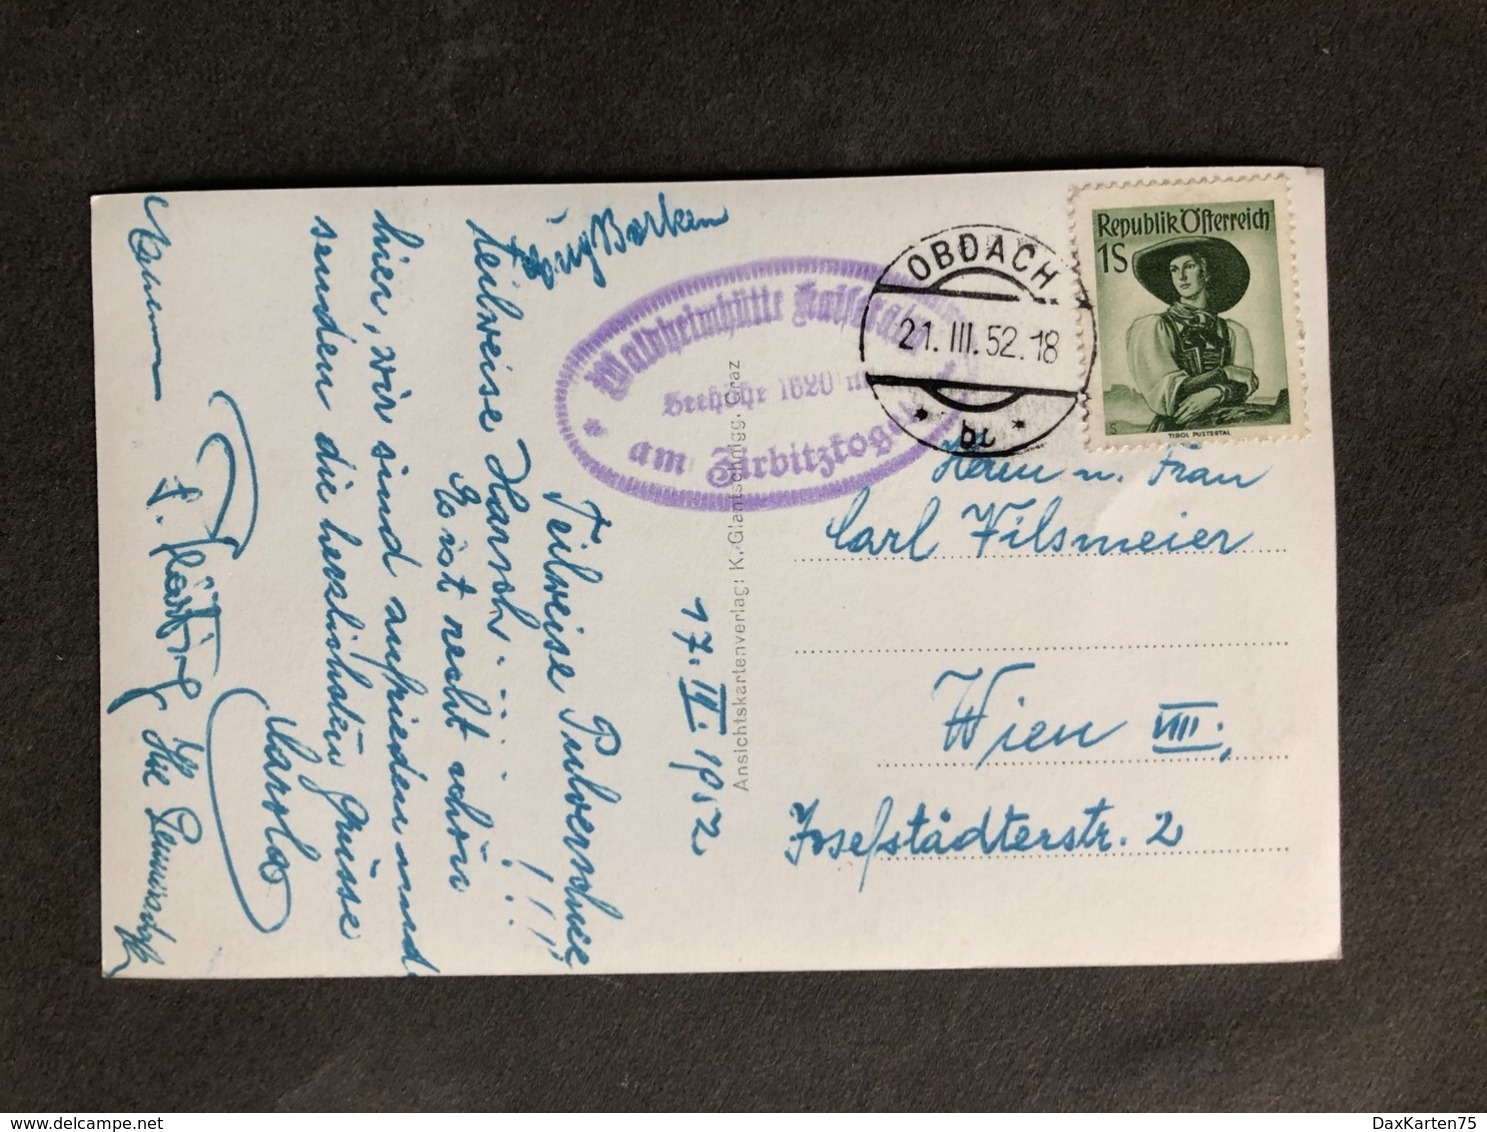 17. III. 1952
Teilweise Pulverschnee
teilweise Harsch. . . . . . !!!
Es ist recht schön
hier, wir sind zufrieden und
senden die herzlichsten Grüsse
Ihre
OBDACH
21. III. 52. 18
* b1 *
Republik Österreich
1S
TIROL PUSTERTAL
Waldheimhütte
Seehöhe 1620 m
am Zirbitzkogel
Ansichtskartenverlag: K. Glantschnigg, Graz
Herrn u. Frau
Carl Filsmeier
Wien VIII.,
Josefstädterstr. 2
DaxKarten75
delcampe.net